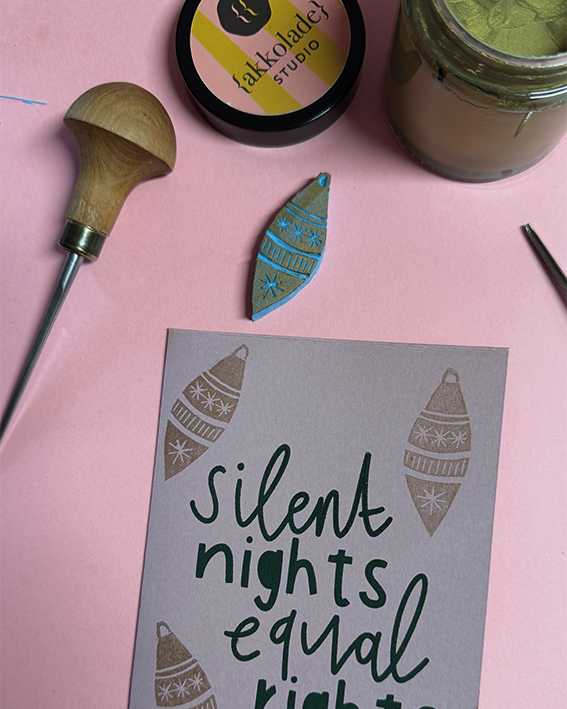 {akkolade}
STUDIO
silent
nights
equal
rights